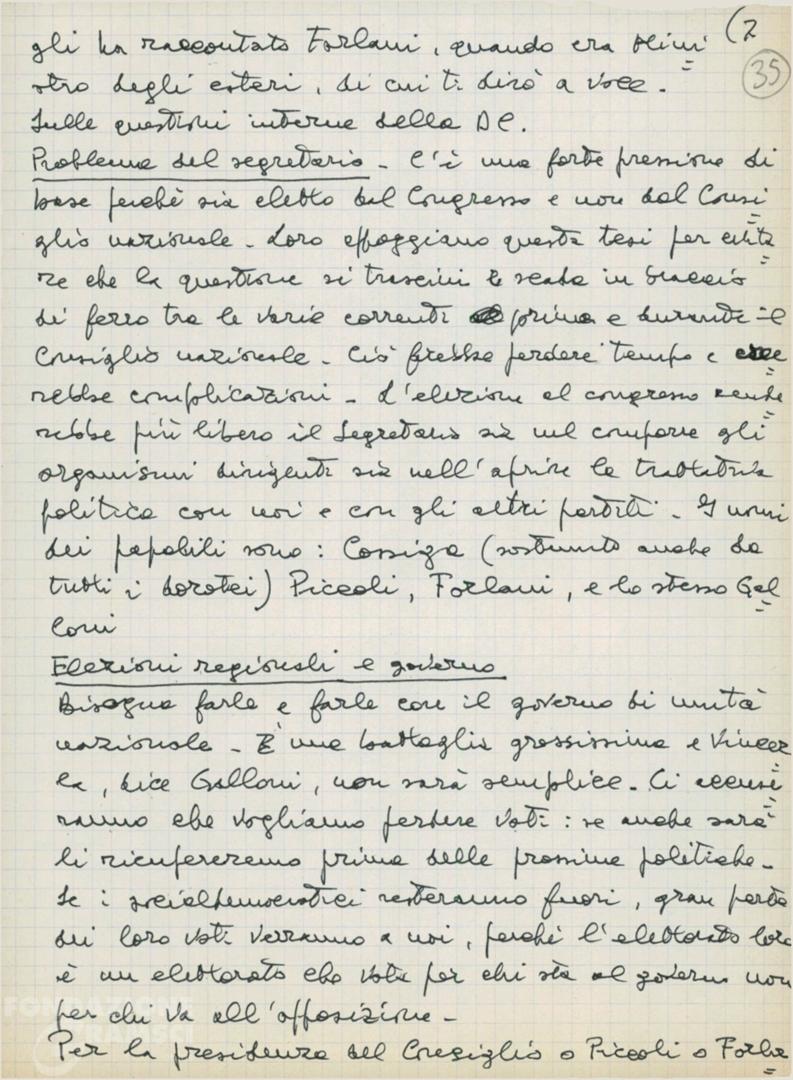 (2
35
gli ha raccontato Forlani, quando era Mini=
stro degli esteri, di cui ti dirò a voce.
Sulle questioni interne della DC.
Problema del segretario - C'è una forte pressione di
base perchè sia eletto dal Congresso e non dal Consi=
glio nazionale - Loro appoggiano questa tesi per evita=
re che la questione si trascini e scada in braccio
di ferro tra le varie correnti prima e durante il
Consiglio nazionale - Ciò farebbe perdere tempo e cree=
rebbe complicazioni - L'elezione al congresso rende=
rebbe più libero il Segretario sia nel comporre gli
organismi dirigenti sia nell'aprire la trattativa
politica con noi e con gli altri partiti - I nomi
dei papabili sono: Cossiga (sostenuto anche da
tutti i dorotei) Piccoli, Forlani, e lo stesso Gal=
loni
Elezioni regionali e governo
Bisogna farle e farle con il governo di unità
nazionale - È una battaglia grossissima e vincer=
la, dice Galloni, non sarà semplice. Ci accuse=
ranno che vogliamo perdere voti: se anche sarà
li ricupereremo prima delle prossime politiche -
Se i socialdemocratici resteranno fuori, gran parte
dei loro voti verranno a noi, perchè l'elettorato loro
è un elettorato che vota per chi sta al governo non
per chi va all'opposizione -
Per la presidenza del Consiglio o Piccoli o Forla=
FONDAZIONE
GRAMSCI